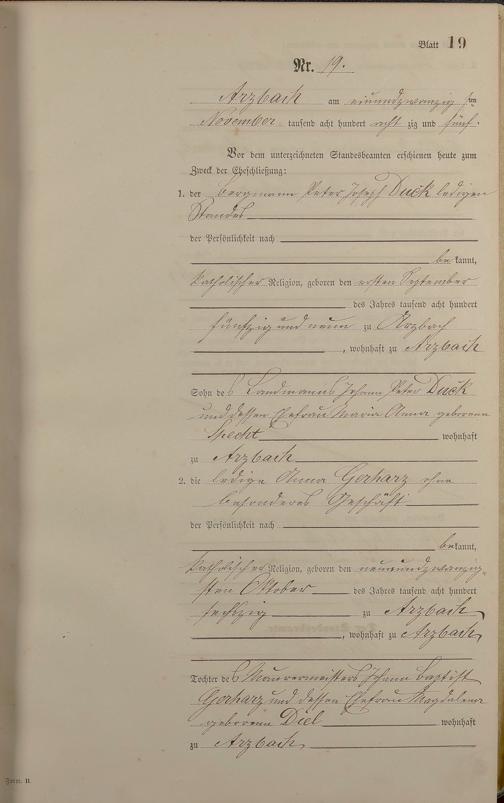 Blatt 19
Nr. 19.
Arzbach am einundzwanzigsten
November tausend acht hundert achtzig und fünf.
Vor dem unterzeichneten Standesbeamten erschienen heute zum
Zweck der Eheschließung:
1. der Bergmann Peter Joseph Duck ledigen
Standes
der Persönlichkeit nach
bekannt,
katholischer Religion, geboren den ersten September
des Jahres tausend acht hundert
fünfzig und neun zu Arzbach
, wohnhaft zu Arzbach
Sohn des Landmanns Johann Peter Duck
und dessen Ehefrau Maria Anna geborene
Specht wohnhaft
zu Arzbach
2. die ledige Anna Gerharz ohne
besonderes Geschäft
der Persönlichkeit nach
bekannt,
katholischer Religion, geboren den neunundzwanzig-
sten Oktober des Jahres tausend acht hundert
sechszig zu Arzbach
, wohnhaft zu Arzbach
Tochter des Maurermeisters Johann Baptist
Gerharz und dessen Ehefrau Magdalena
geborene Diel wohnhaft
zu Arzbach
Form. B.